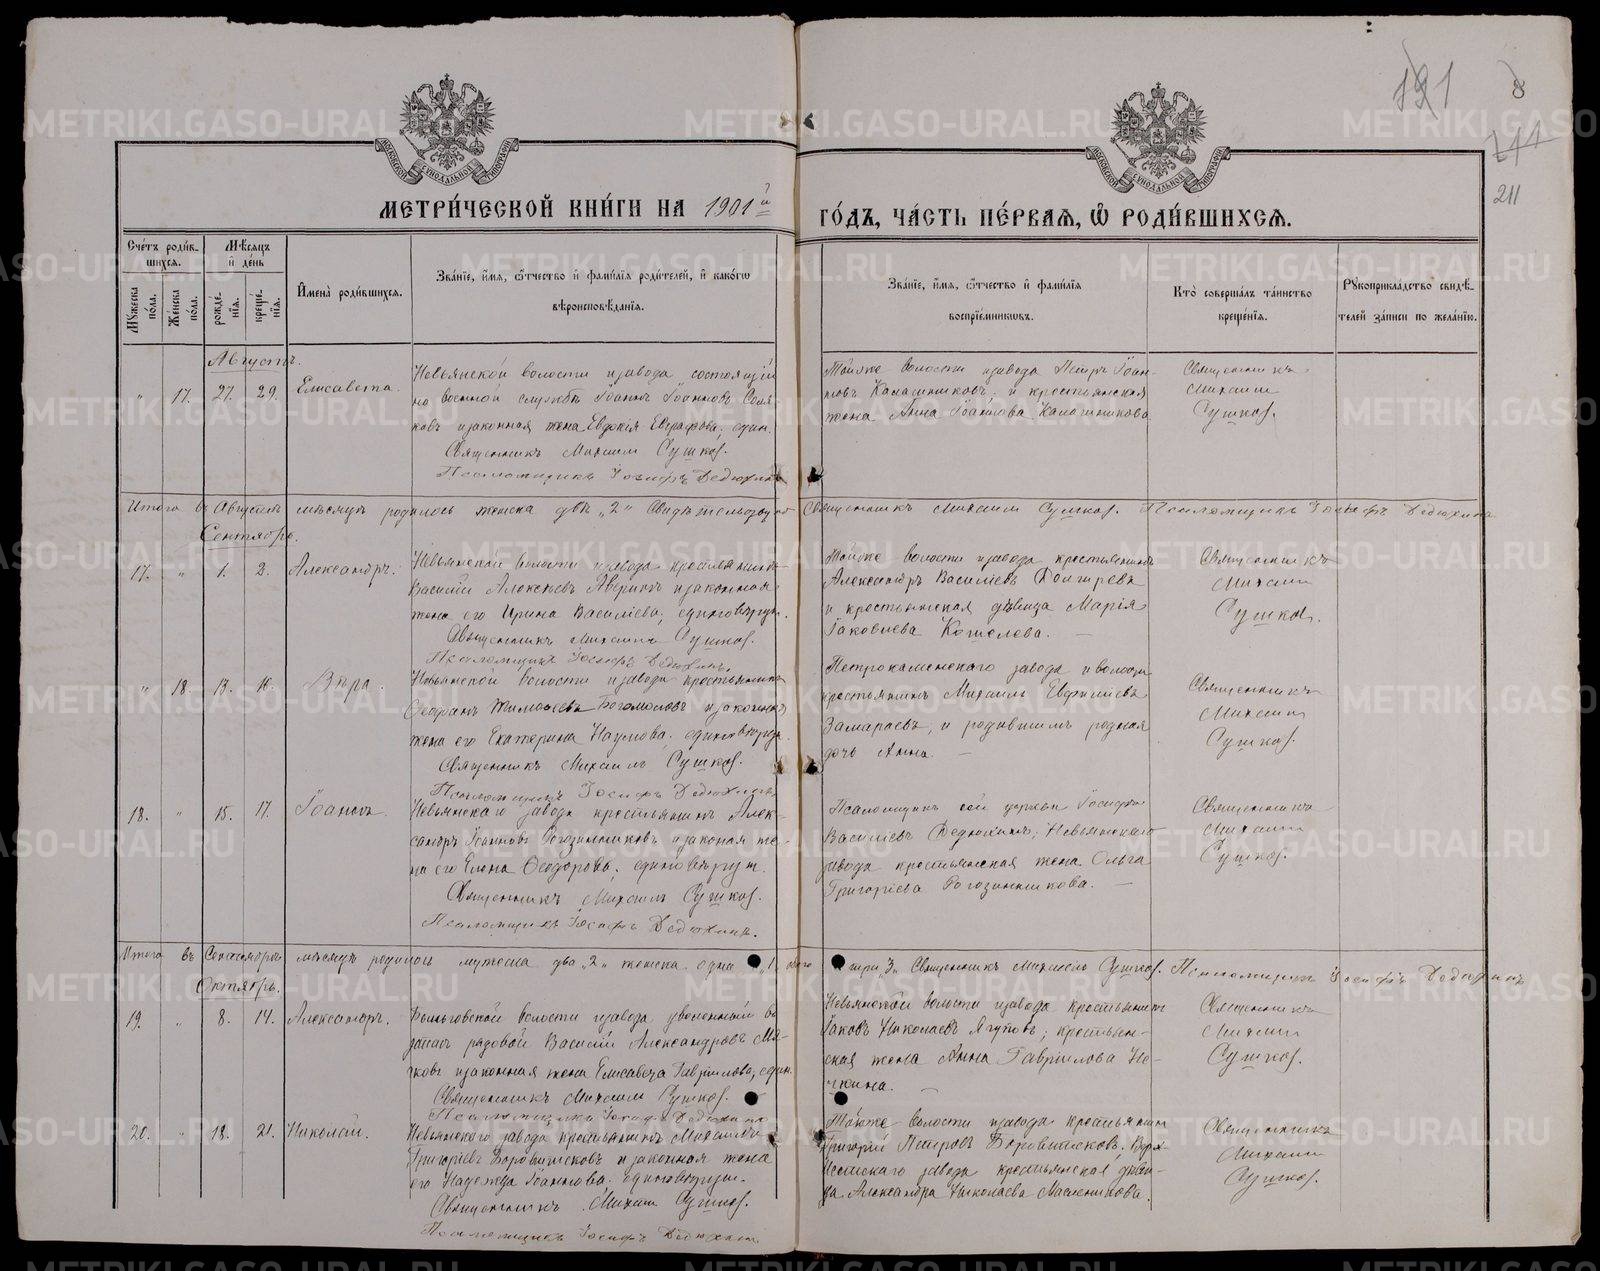 191
8
211
МЕТРИ́ЧЕСКОЙ КНИ́ГИ НА 1901й ГО́ДЪ, ЧА́СТЬ ПЕ́РВАѦ, Ѽ РОДИ́ВШИХСѦ.
Сче́тъ роди́вшихсѧ.
Мѹ́жеска по́ла.
Же́нска по́ла.
Мѣ́сѧцъ и҆ де́нь
рожде́нїѧ.
креще́нїѧ.
И҆мена̀ роди́вшихсѧ.
Зва́нїе, и҆́мѧ, ѻ҆́тчество и҆ фами́лїѧ роди́телей, и҆ како́гѡ
вѣроисповѣ́данїѧ.
Зва́нїе, и҆́мѧ, ѻ҆́тчество и҆ фами́лїѧ
воспрїе́мникѡвъ.
Кто̀ соверша́лъ та́инство
креще́нїѧ.
Рѹкоприкла́дство свидѣ́-
телей за́писи по жела́нїю.
Августъ.
" 17. 27. 29. Елисавета.
Невьянской волости и завода состоящій
на военной службѣ Іоаннъ Іоанновъ
ковъ и законная жена Евдокія Евграфова, един.
Священникъ Михаилъ Сушков.
Псаломщикъ Іосифъ Дедюхинъ
Той же волости и завода Петръ Іоан-
новъ Калашниковъ, и крестьянская
жена Анна Іоаннова Калашникова
Священникъ
Михаил
Сушков.
Итого въ Августѣ мѣсяцѣ родилось женска двѣ „2" Священникъ Михаил Сушков. Псаломщикъ Іосифъ Дедюхинъ
Сентябрь.
17. " 1. 2. Александръ.
Невьянской волости и завода крестьянинъ
Василій Алексѣевъ Аверинъ и законная
жена его Ирина Василіева, единовѣрцы.
Священникъ Михаилъ Сушков.
Псаломщикъ Іосифъ Дедюхинъ.
Той же волости и завода крестьянинъ
Александръ Василіевъ
и крестьянская дѣвица Марія
Іаковлева Кошелева.
Священникъ
Михаил
Сушков.
" 18. 13. 16. Вѣра.
Невьянской волости и завода крестьянинъ
Ѳеофанъ Тимоѳеевъ Богомоловъ и законная
жена его Екатерина Наумова, единовѣрцы.
Священникъ Михаилъ Сушков.
Псаломщикъ Іосифъ Дедюхинъ
Петрокаменскаго завода и волости
крестьянинъ Михаилъ
Замараевъ, и родившимъ родная
дочь Анна.
Священникъ
Михаил
Сушков.
18. " 15. 17. Іоаннъ
Невьянскаго завода крестьянинъ Алек-
сандръ Іоанновъ Рогозинниковъ и законная же-
на его Елена Ѳеодорова, единовѣрцы.
Священникъ Михаилъ Сушков.
Псаломщикъ Іосифъ Дедюхинъ.
Псаломщикъ сей церкви Іосифъ
Василіевъ Дедюхинъ, Невьянскаго
завода крестьянская жена Ольга
Григоріева Рогозинникова.
Священникъ
Михаил
Сушков.
Итого въ Сентябрѣ мѣсяцѣ родилось мужеска два „2" женска одна „1" всего три „3" Священникъ Михаилъ Сушков. Псаломщикъ Іосифъ Дедюхинъ
Октябрь.
19. " 8. 14. Александръ.
Быньговской волости и завода уволенный въ
запасъ рядовой Василій Александровъ Мя-
чковъ и законная жена Елисавета Гавріилова, един.
Священникъ Михаилъ Сушков.
Псаломщикъ Іосифъ Дедюхинъ
Невьянской волости и завода крестьянинъ
Іаковъ Николаевъ Ягуповъ, крестьян-
ская жена Анна Гавріилова Не-
чкина.
Священникъ
Михаил
Сушков.
20. " 18. 21. Николай.
Невьянскаго завода крестьянинъ Михаилъ
Григоріевъ Боровитковъ и законная жена
его Надежда Іоаннова, единовѣрцы.
Священникъ Михаил Сушков.
Псаломщикъ Іосифъ Дедюхинъ
Той же волости и завода крестьянинъ
Григорій Петровъ Боровитковъ, Верх-
завода крестьянская дѣви-
ца Александра Николаева Масленникова.
Священникъ
Михаил
Сушков.
METRIKI.GASO-URAL.RU